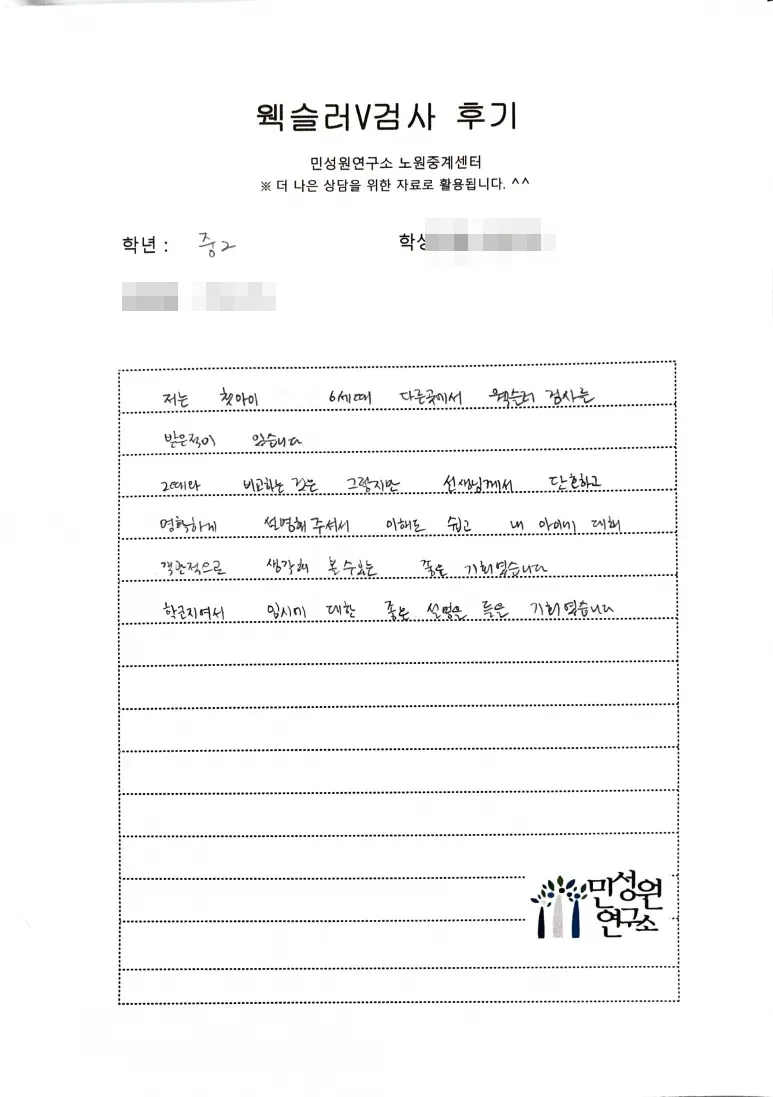 웩슬러V검사 후기
민성원연구소 노원중계센터
※ 더 나은 상담을 위한 자료로 활용됩니다. ^^
학년 : 중2
저는 첫아이 6세때 다른곳에서 웩슬러 검사를
받은적이 있습니다
그때와 비교하는 것은 그렇지만 선생님께서 단호하고
명확하게 설명해 주셔서 이해도 쉽고 내 아이에 대해
객관적으로 생각해 볼수있는 좋은 기회였습니다
입시에 대한 좋은 설명을 들은 기회였습니다
민성원
연구소